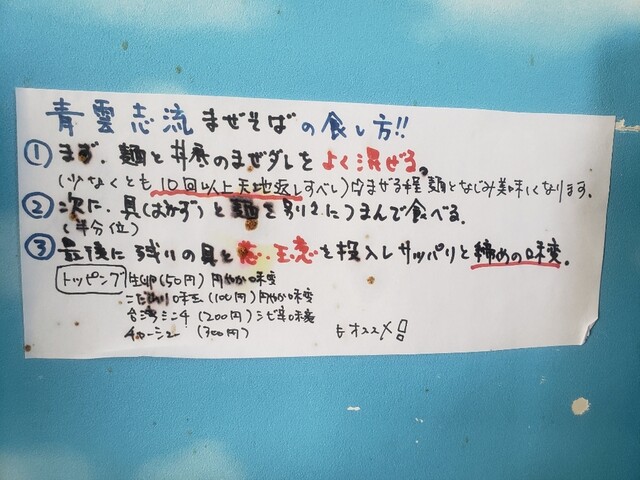 青雲志流 まぜそばの食し方!!
① まず、麺と丼底のまぜダレをよく混ぜる。
(少なくとも10回以上天地返しすべし) まぜる程麺となじみ美味しくなります。
② 次に、具(はみず)と麺を別々につまんで食べる。
(半分位)
③ 最後に残りの具と 酢、玉葱を投入しサッパリと締めの味変。
トッピング 生卵(50円) 円やか味変
こだわり味玉(100円) 円やか味変
台湾ミンチ(200円) シビ辛味変
チャーシュー (300円)
もオススメ!